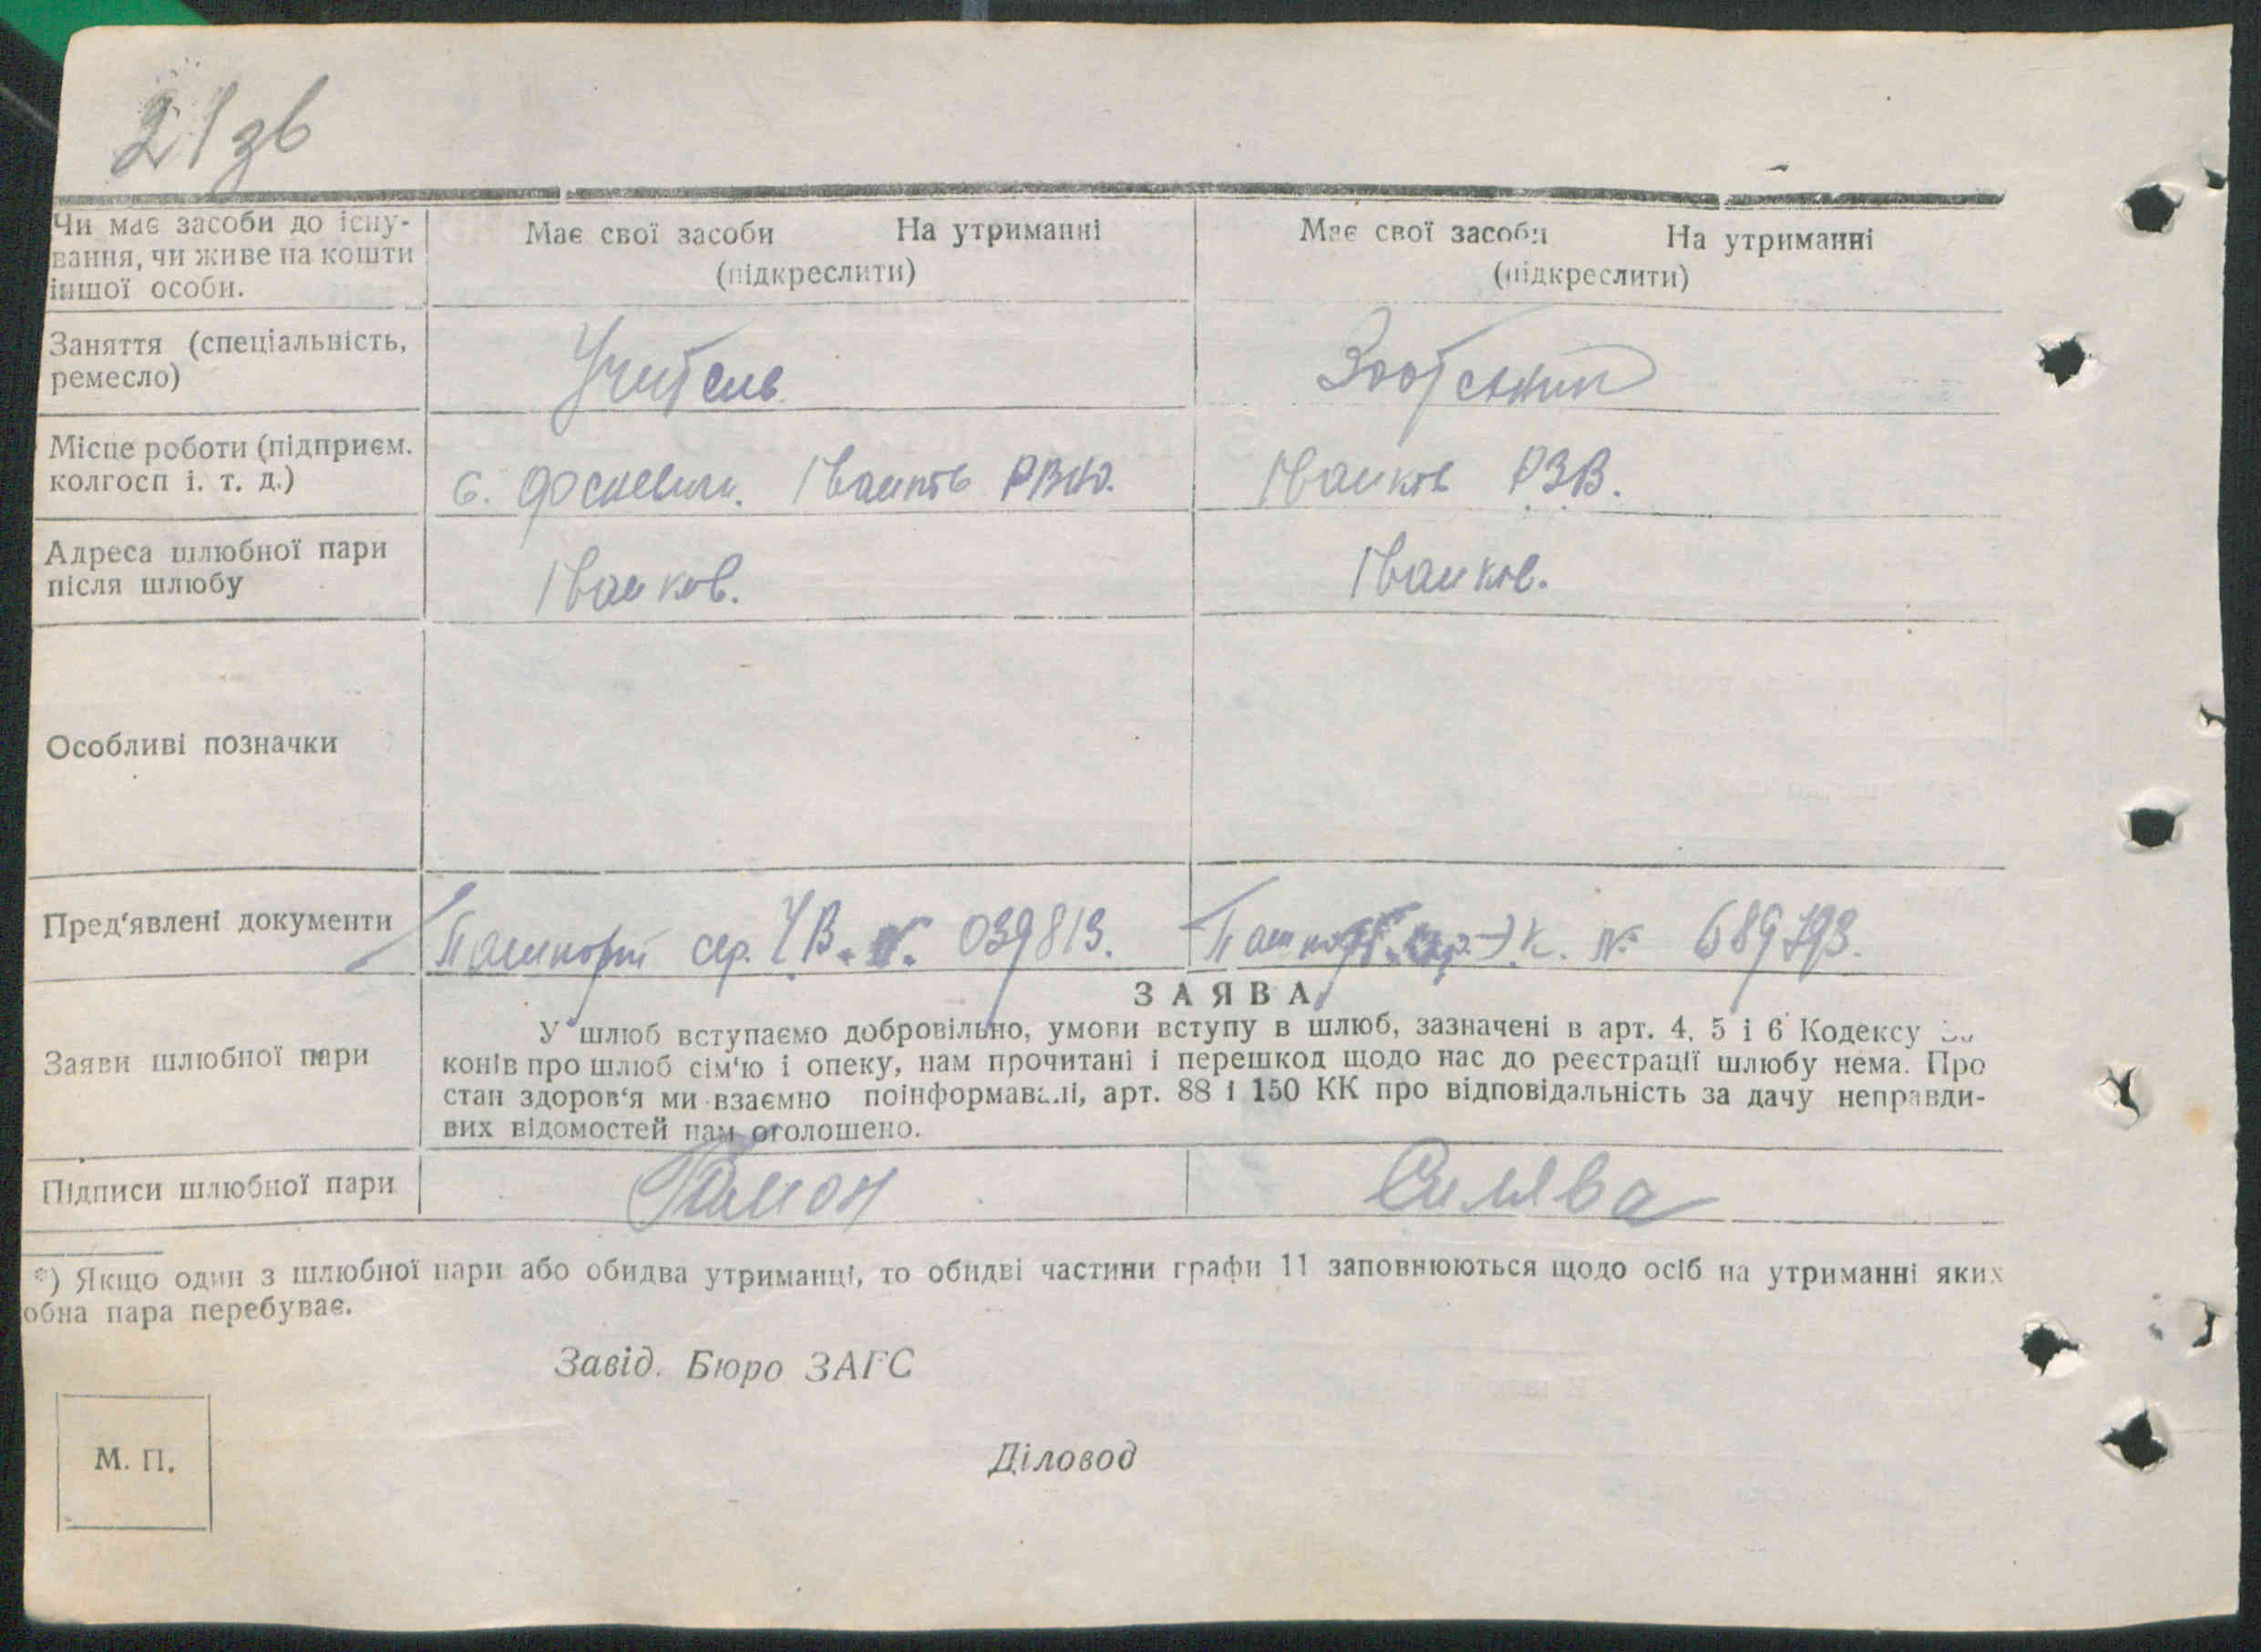 21 зв
Чи має засоби до існу-
вання, чи живе на кошти
іншої особи.
Має свої засоби На утриманні
(підкреслити)
Має свої засоби На утриманні
(підкреслити)
Заняття (спеціальність,
ремесло)
Учитель
Зоотехнік
Місце роботи (підприєм.
колгосп і. т. д.)
с. Іванків
Іванків РЗВ.
Адреса шлюбної пари
після шлюбу
Іванків.
Іванків.
Особливі позначки
Пред'явлені документи
Пашпорт сер. ЧВ. №. 039813.
Пашпорт. сер. ЭК. № 689793.
ЗАЯВА
Заяви шлюбної пари
У шлюб вступаємо добровільно, умови вступу в шлюб, зазначені в арт. 4, 5 і 6 Кодексу
конів про шлюб сім'ю і опеку, нам прочитані і перешкод щодо нас до реєстрації шлюбу нема. Про
стан здоров'я ми взаємно поінформавалі, арт. 88 і 150 КК про відповідальність за дачу неправди-
вих відомостей нам оголошено.
Підписи шлюбної пари
*) Якщо один з шлюбної пари або обидва утриманці, то обидві частини графи 11 заповнюються щодо осіб на утриманні яких
обна пара перебуває.
Завід. Бюро ЗАГС
М. П.
Діловод